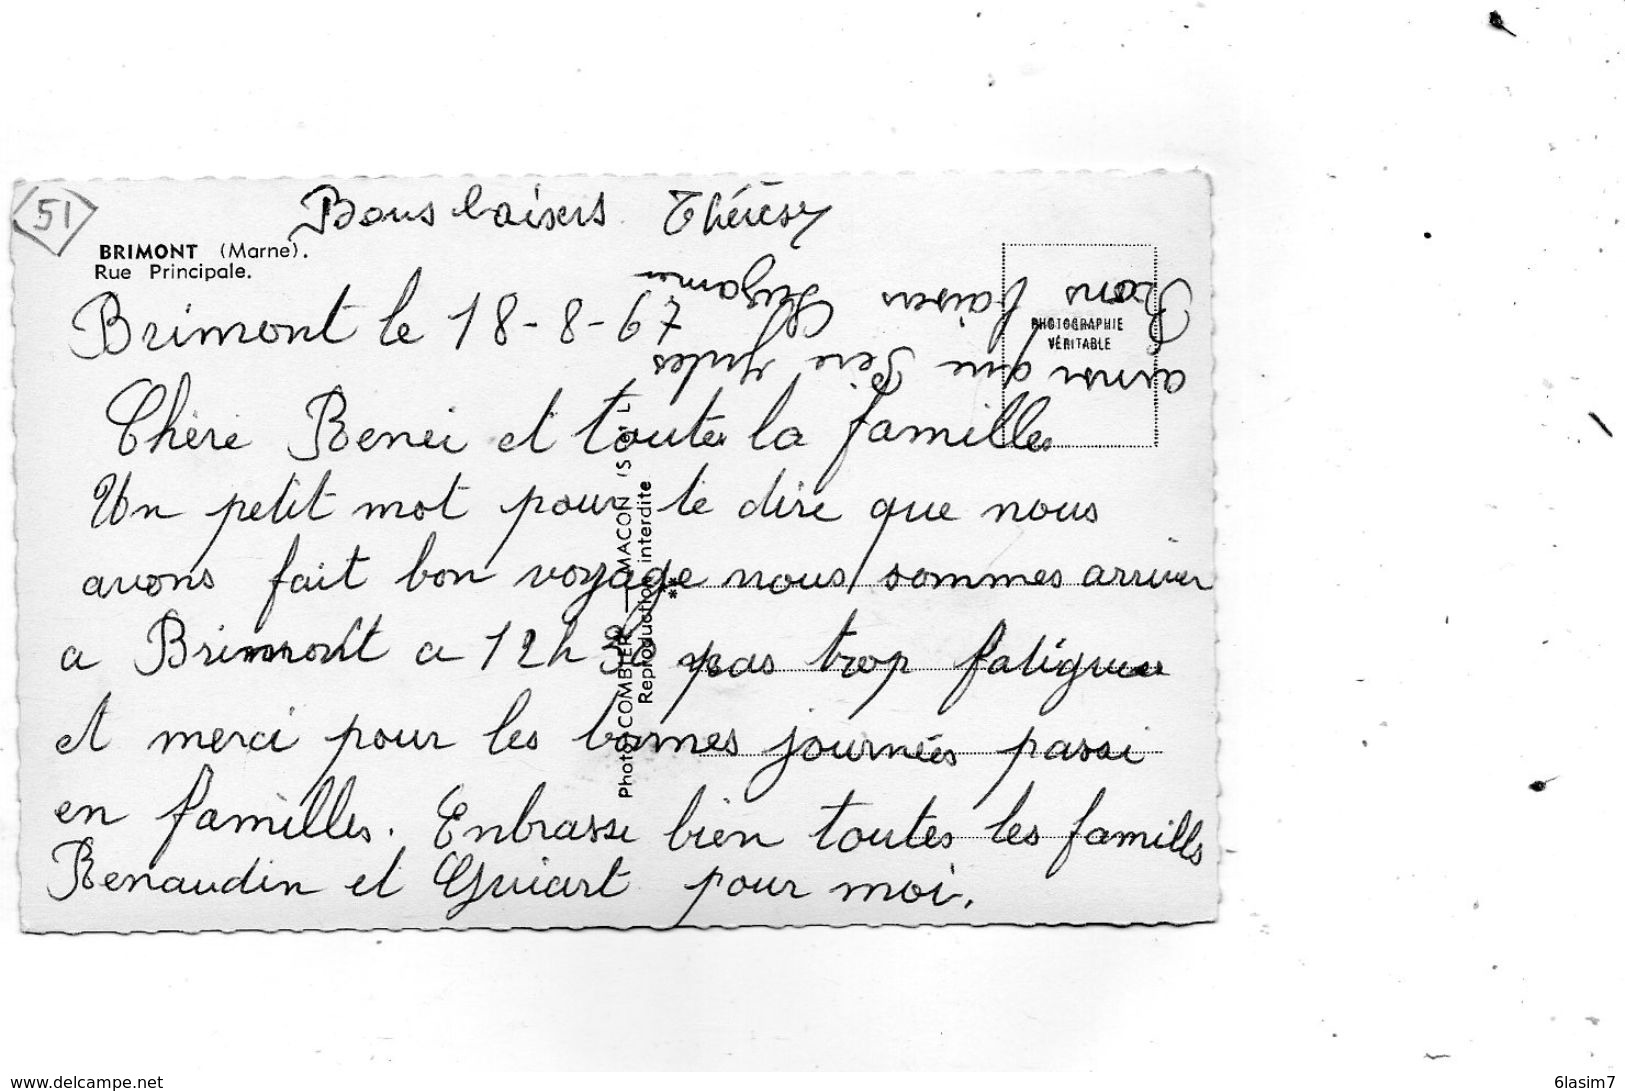 51
Bons baisers Thérèse
BRIMONT (Marne).
Rue Principale.
Brimont le 18-8-67
ainsi que Père Jules
Bons baisers
PHOTOGRAPHIE
VÉRITABLE
Chère Renéi et toutes la familles
Un petit mot pour te dire que nous
avons fait bon voyage nous sommes arriver
a Brimont a 12h 30 pas trop fatiguer
et merci pour les bonnes journées passi
en familles. Enbrasse bien toutes les familles
Renaudin et Guiart pour moi.
Photo COMBIER — MACON (S.-&-L.)
Reproduction interdite
**
www.delcampe.net
6lasim7